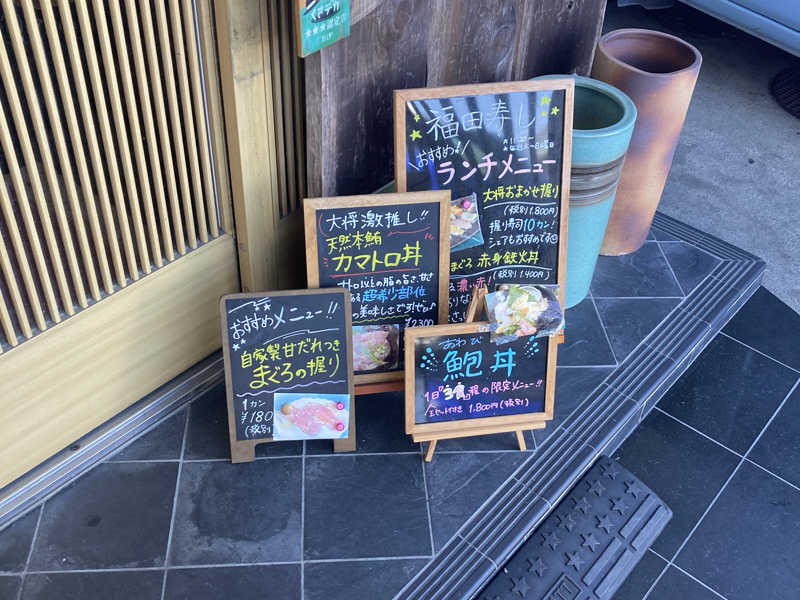 福田寿し
おすすめ!
ランチメニュー
大将おまかせ握り
(税別1,800円)
握り寿司10カン!
シェアもおすすめです
まぐろ 赤身鉄火丼
(税別1,400円)
大将激推し!!
天然本鮪
カマトロ丼
超希少部位
¥2300
おすすめメニュー!!
自家製甘だれつき
まぐろの握り
1カン
¥180
(税別)
あわび
鮑丼
1日 限定メニュー!!
1,800円(税別)